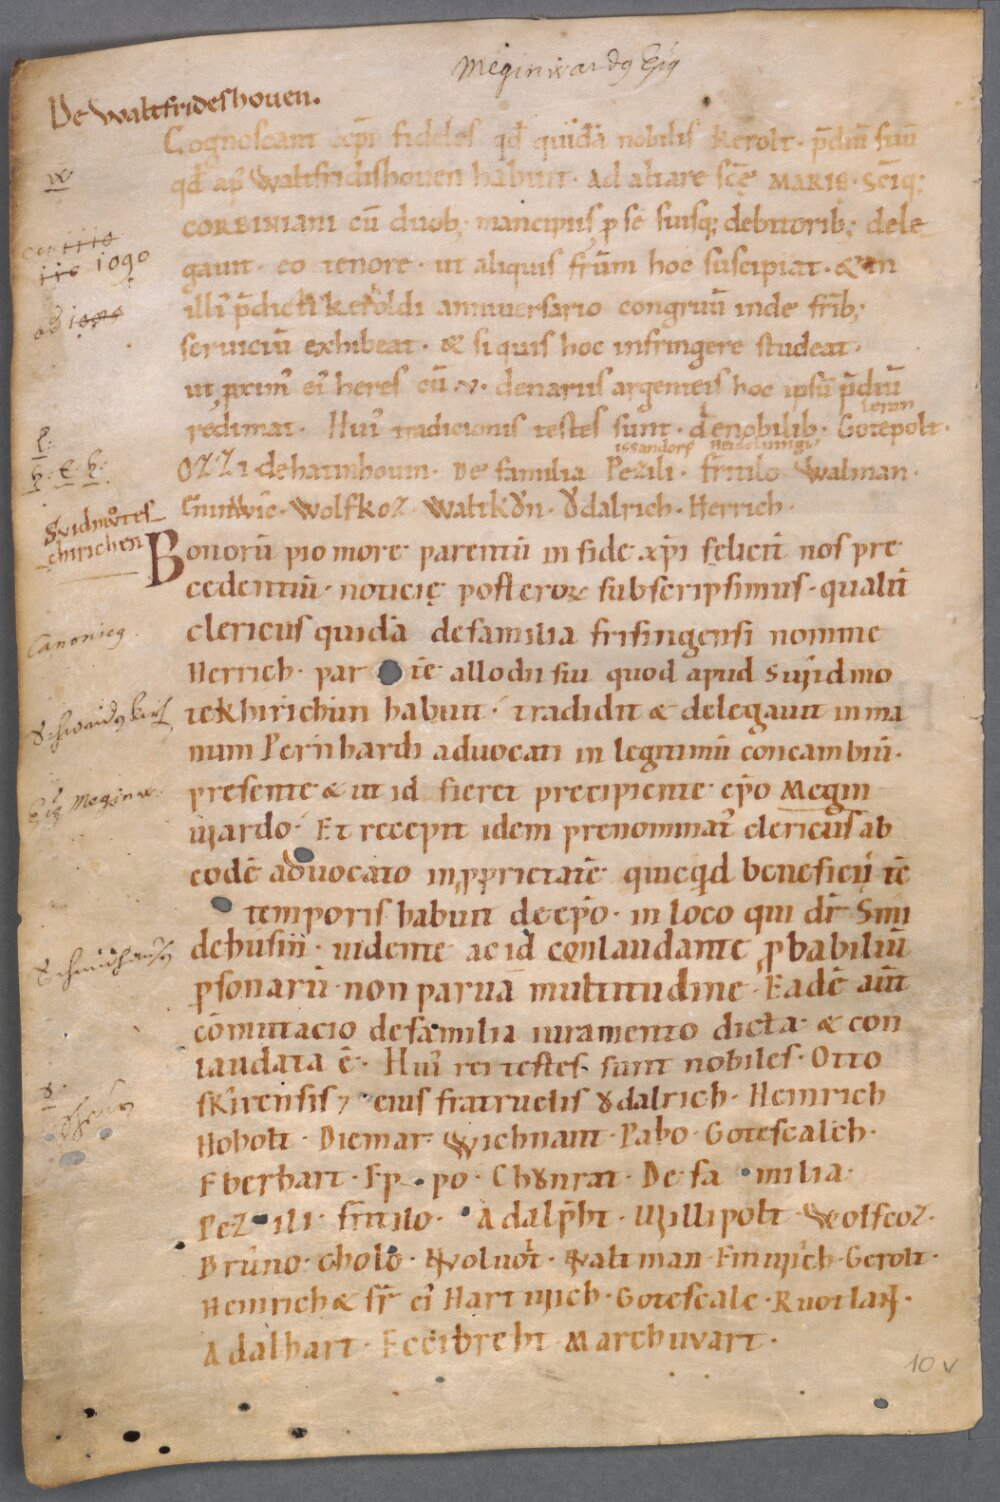 Meginwardus Epûs
De Waltfrideshouen.
Cognoscant xp̄i fideles qđ quidā nobilis kerolt · p̄diū suū
qđ ap̄ Waltfridishouen habuit · Ad altare scę̄ MARIE · Scīq;
CORBINIANI cū duob; mancipiis p se suisq; debitorib; dele
gauit · eo tenore · ut aliquis frūm hoc suscipiat · & in
illi' p̄dicti keroldi anniuersario congruū inde frīb;
seruiciū exhibeat · & si quis hoc infringere studeat ·
ut pxim' ei' heres cū · v · denariis argenteis hoc ipsū p̄diū
redimat · Hui' tradicionis testes sunt · de nobilib · Gotepolt ·
OZZI de hatinhouin · De familia Pezili · frītilo Walman ·
Wolfkoz · Waltkŏn · Ŏdalrich · Herrich ·
Bonorū pio more parentū in fide xp̄i feliciī nos pre
cedentiū · noticię posteroꝝ subscripsimus · qualiī
clericus quidā de familia frisingensi nomine
Herrich · par tē allodii sui quod apud Suuidmo
tekhirichun habuit · tradidit & delegauit in ma
num Pernhardi aduocati in legitimū concambiū ·
presente & ut id fieret precipiente ep̄o Megin
uuardo · Et recepit idem prenominat' clericus ab
eodē aduocato in pprietatē quicqd beneficii tē
temporis habuit de ep̄o · in loco qui dr̄ Smi
dehusin · uidente ac id conlaudante pbabiliū
psonarū non parua multitudine · Eadē aūt
cōmutacio de familia iuramento dicta & con
laudata ē · Hui' rei testes sunt nobiles · Otto
skirensis 7 eius fratruelis ŏdalrich · Heinrich
Hobolt · Diemar · Wichnant · Pabo · Gotescalch ·
Eberhart · Ep po · Chŏnrat · De fa milia ·
Pez ili · frītilo · Adalp̄ht · Uuillipolt · Wolfcoz ·
Bruno · cholo · Wolnot · Waltman · Einuuich · Gerolt ·
Heinrich & fr̄ ei' Hartuuich · Gotescalc · Ruotlan ·
Adalhart · Eccibreht · Marchuuart ·
leran
issandorf
w
1090
Suidmŏtes
chirichen
Canonicus
Schwaidkirch
Epûs Meginw:
Schmidhausen
10 v